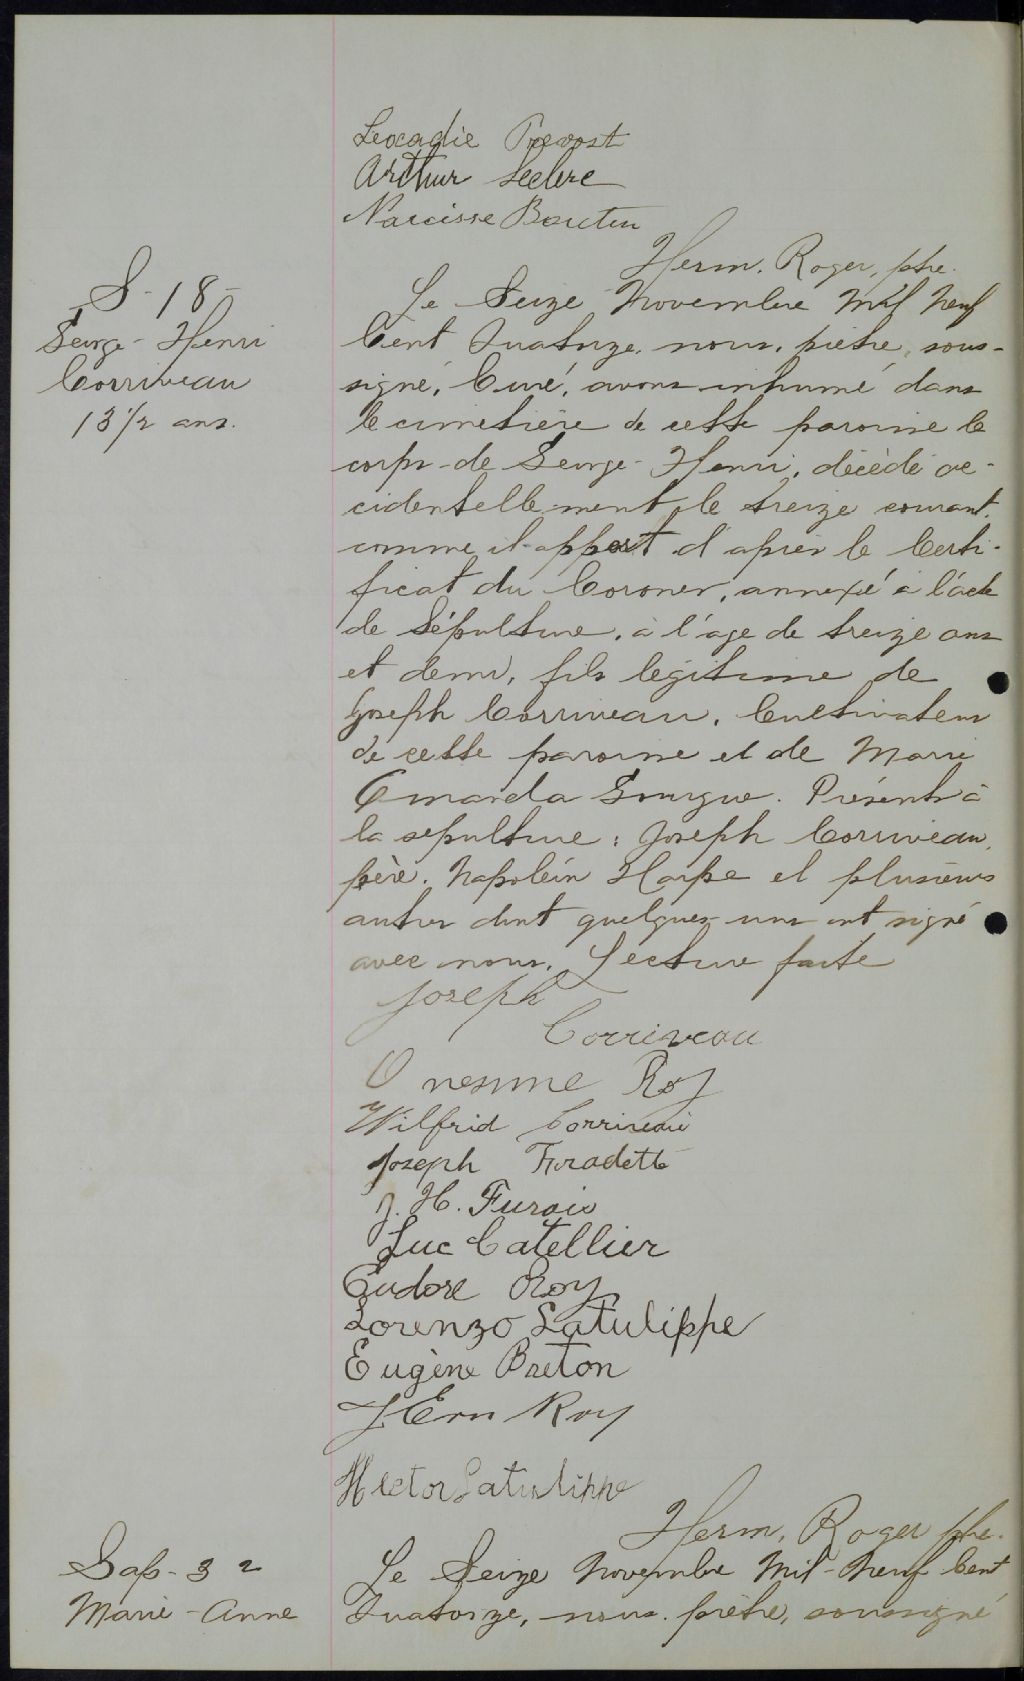 Leocadie Prevost
Arthur Leclerc
Narcisse Boutin
Herm. Roger, ptre.
S-18-
George-Henri
Corriveau
13 1/2 ans.
Le Seize Novembre Mil Neuf
Cent Quatorze, nous, prêtre, sous-
signé, Curé, avons inhumé dans
le cimetière de cette paroisse le
corps de George-Henri, décédé ac-
cidentellement le treize courant,
comme il appert d'après le Certi-
ficat du Coroner, annexé à l'acte
de Sépulture, à l'age de treize ans
et demi, fils légitime de
Joseph Corriveau, Cultivateur
de cette paroisse et de Marie
Amanda Gourgue. Présents à
la sepulture: Joseph Corriveau,
père, Napoléon Harpe et plusieurs
autres dont quelques-uns ont signé
avec nous. Lecture faite
Joseph
Corriveau
Onesime Roy
Wilfrid Corriveau
Joseph Fradette
J. H. Furois
Luc Catellier
Eudore Roy
Lorenzo Latulippe
Eugène Breton
J Ern Roy
Hector Latulippe
Herm. Roger ptre.
Bap-32
Marie-Anne
Le Seize Novembre Mil-Neuf Cent
Quatorze, nous, prêtre, soussigné